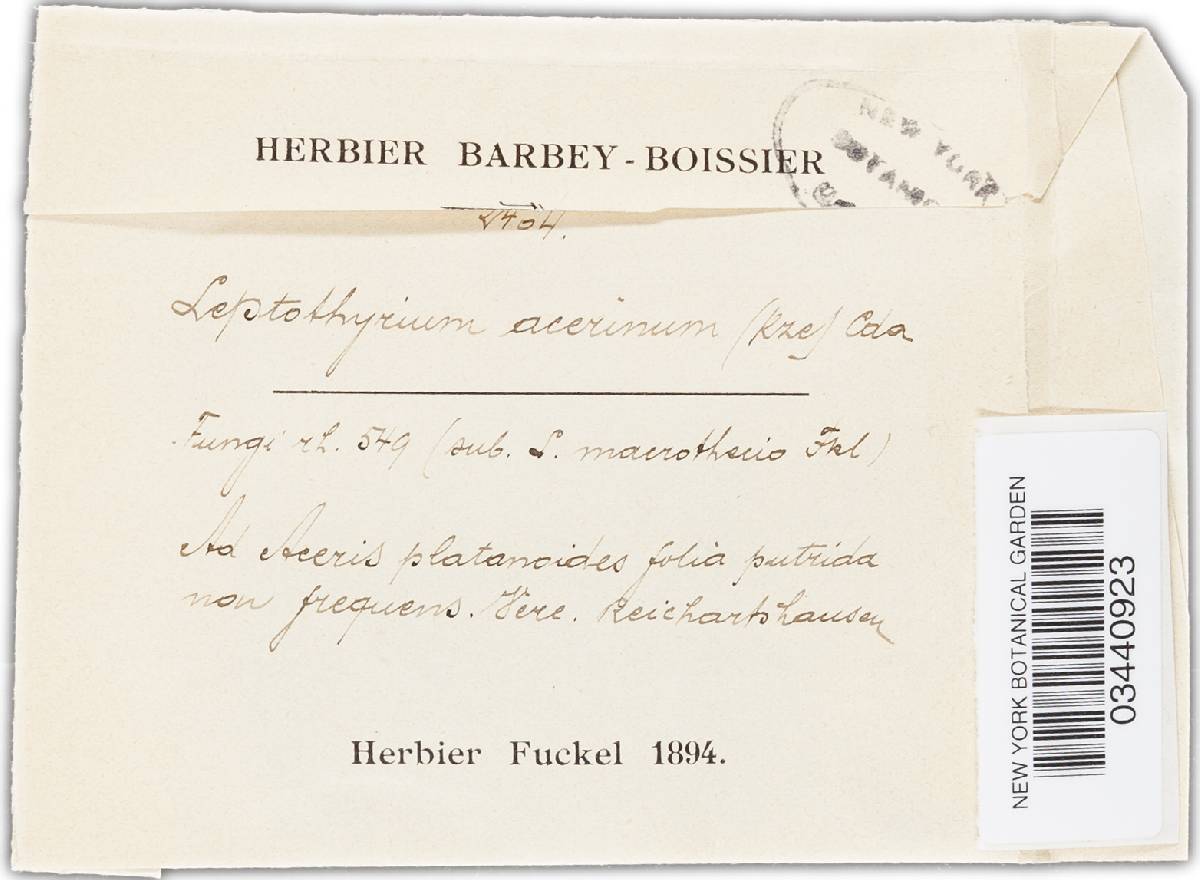 HERBIER BARBEY-BOISSIER
NEW YORK
BOTANI
Leptothyrium acerinum (Kze) Cda
Fungi rh. 549 (sub. L. macrothecio Fkl)
Ad Aceris platanoides folia putrida
non frequens. Vere. Reichartshausen
Herbier Fuckel 1894.
NEW YORK BOTANICAL GARDEN
03440923